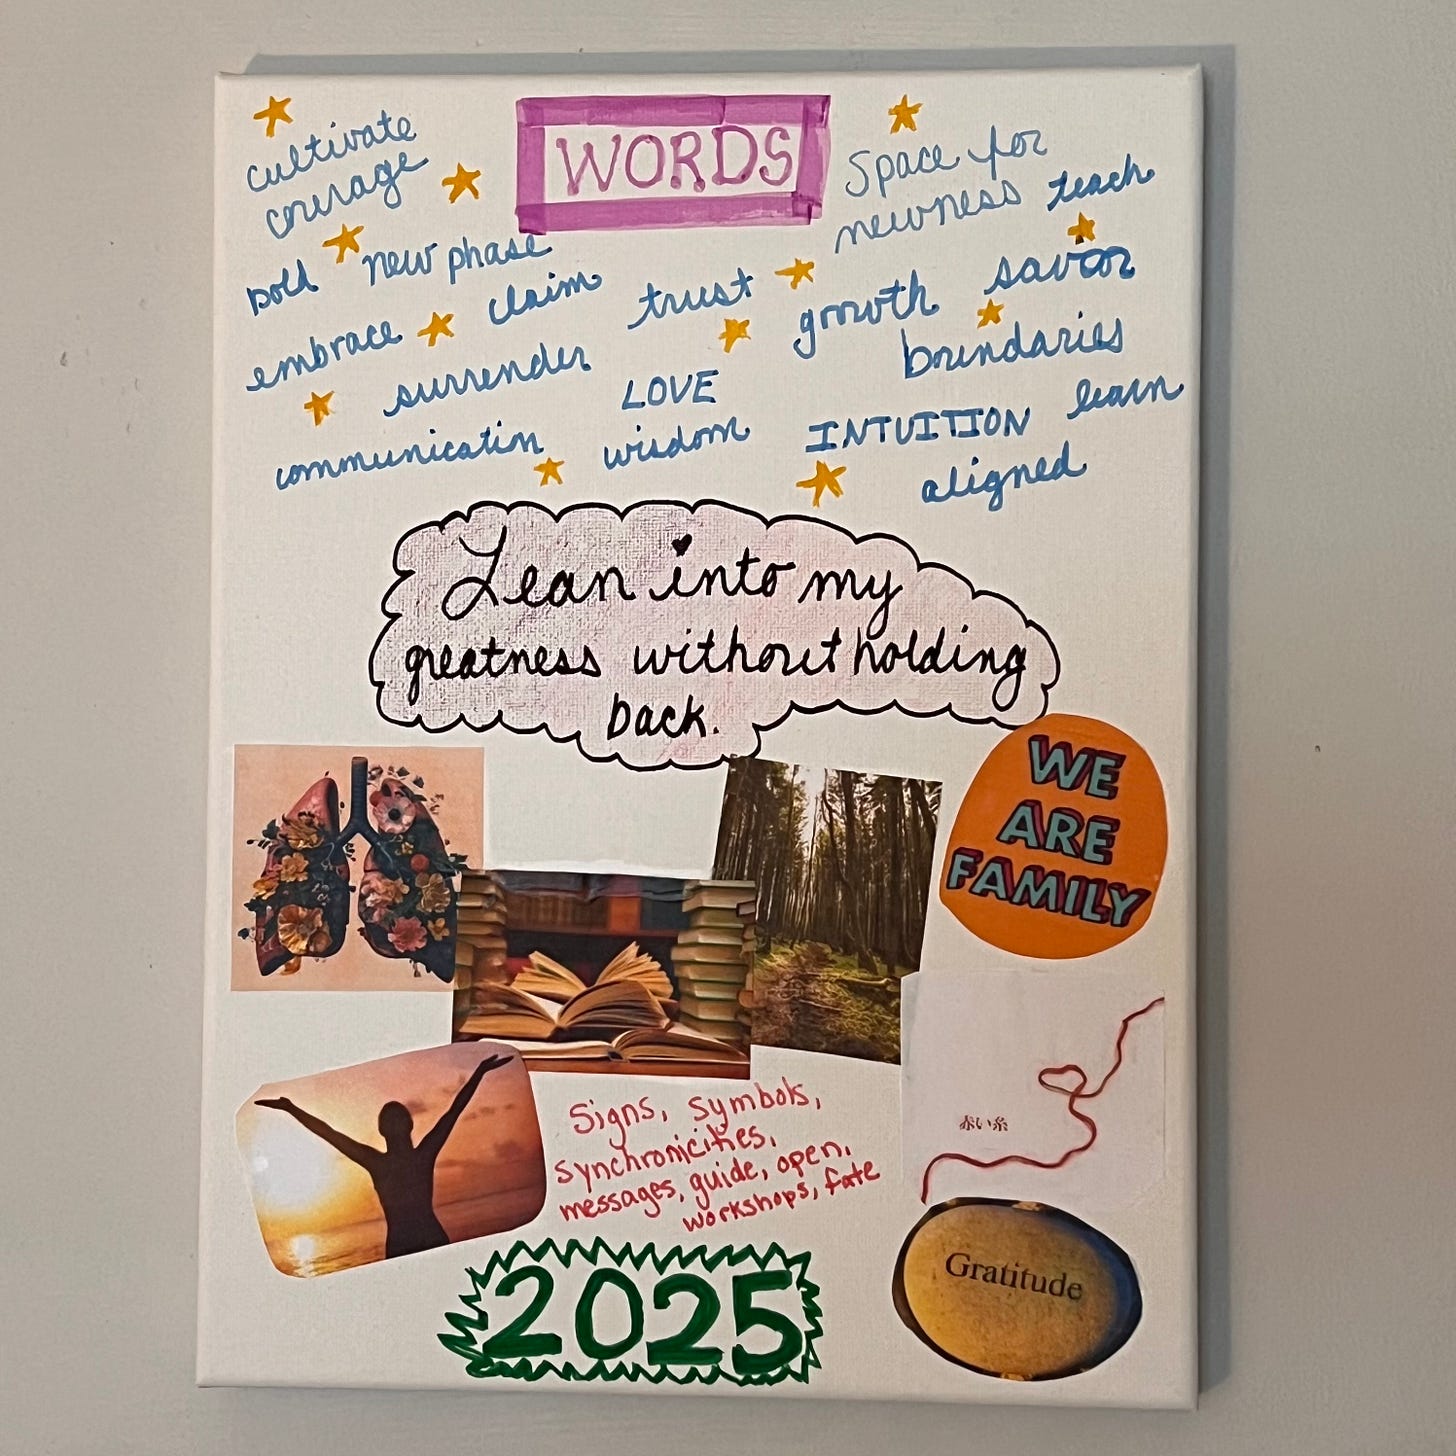 WORDS
cultivate
courage
Space for
newness
teach
bold
new phase
claim
trust
growth
savor
embrace
surrender
LOVE
boundaries
communication
wisdom
INTUITION
learn
aligned
Lean into my
greatness without holding
back.
WE
ARE
FAMILY
赤い糸
Signs, symbols,
synchronicities,
messages, guide, open,
workshops, fate
Gratitude
2025